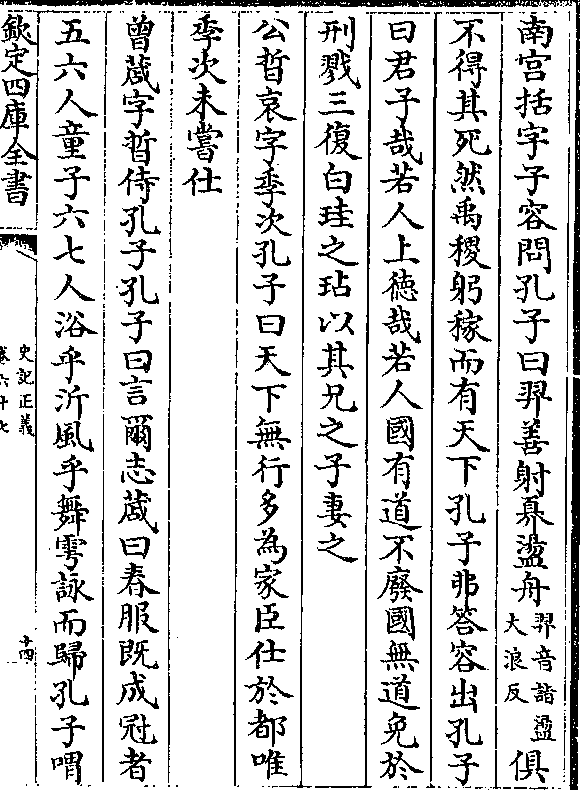 南宫括字子容問孔子曰羿善射奡盪舟羿音詣盪大浪反俱
不得其死然禹稷躬稼而有天下孔子弗答容出孔子
曰君子哉若人上徳哉若人國有道不廢國無道免於
刑戮三復白珪之玷以其兄之子妻之
公晳哀字季次孔子曰天下無行多為家臣仕於都唯
季次未嘗仕
曾蒧字晳侍孔子孔子曰言爾志蒧曰春服既成冠者
五六人童子六七人浴乎沂風乎舞雩詠而歸孔子喟
欽定四庫全書
史記正義
卷六十七
十四